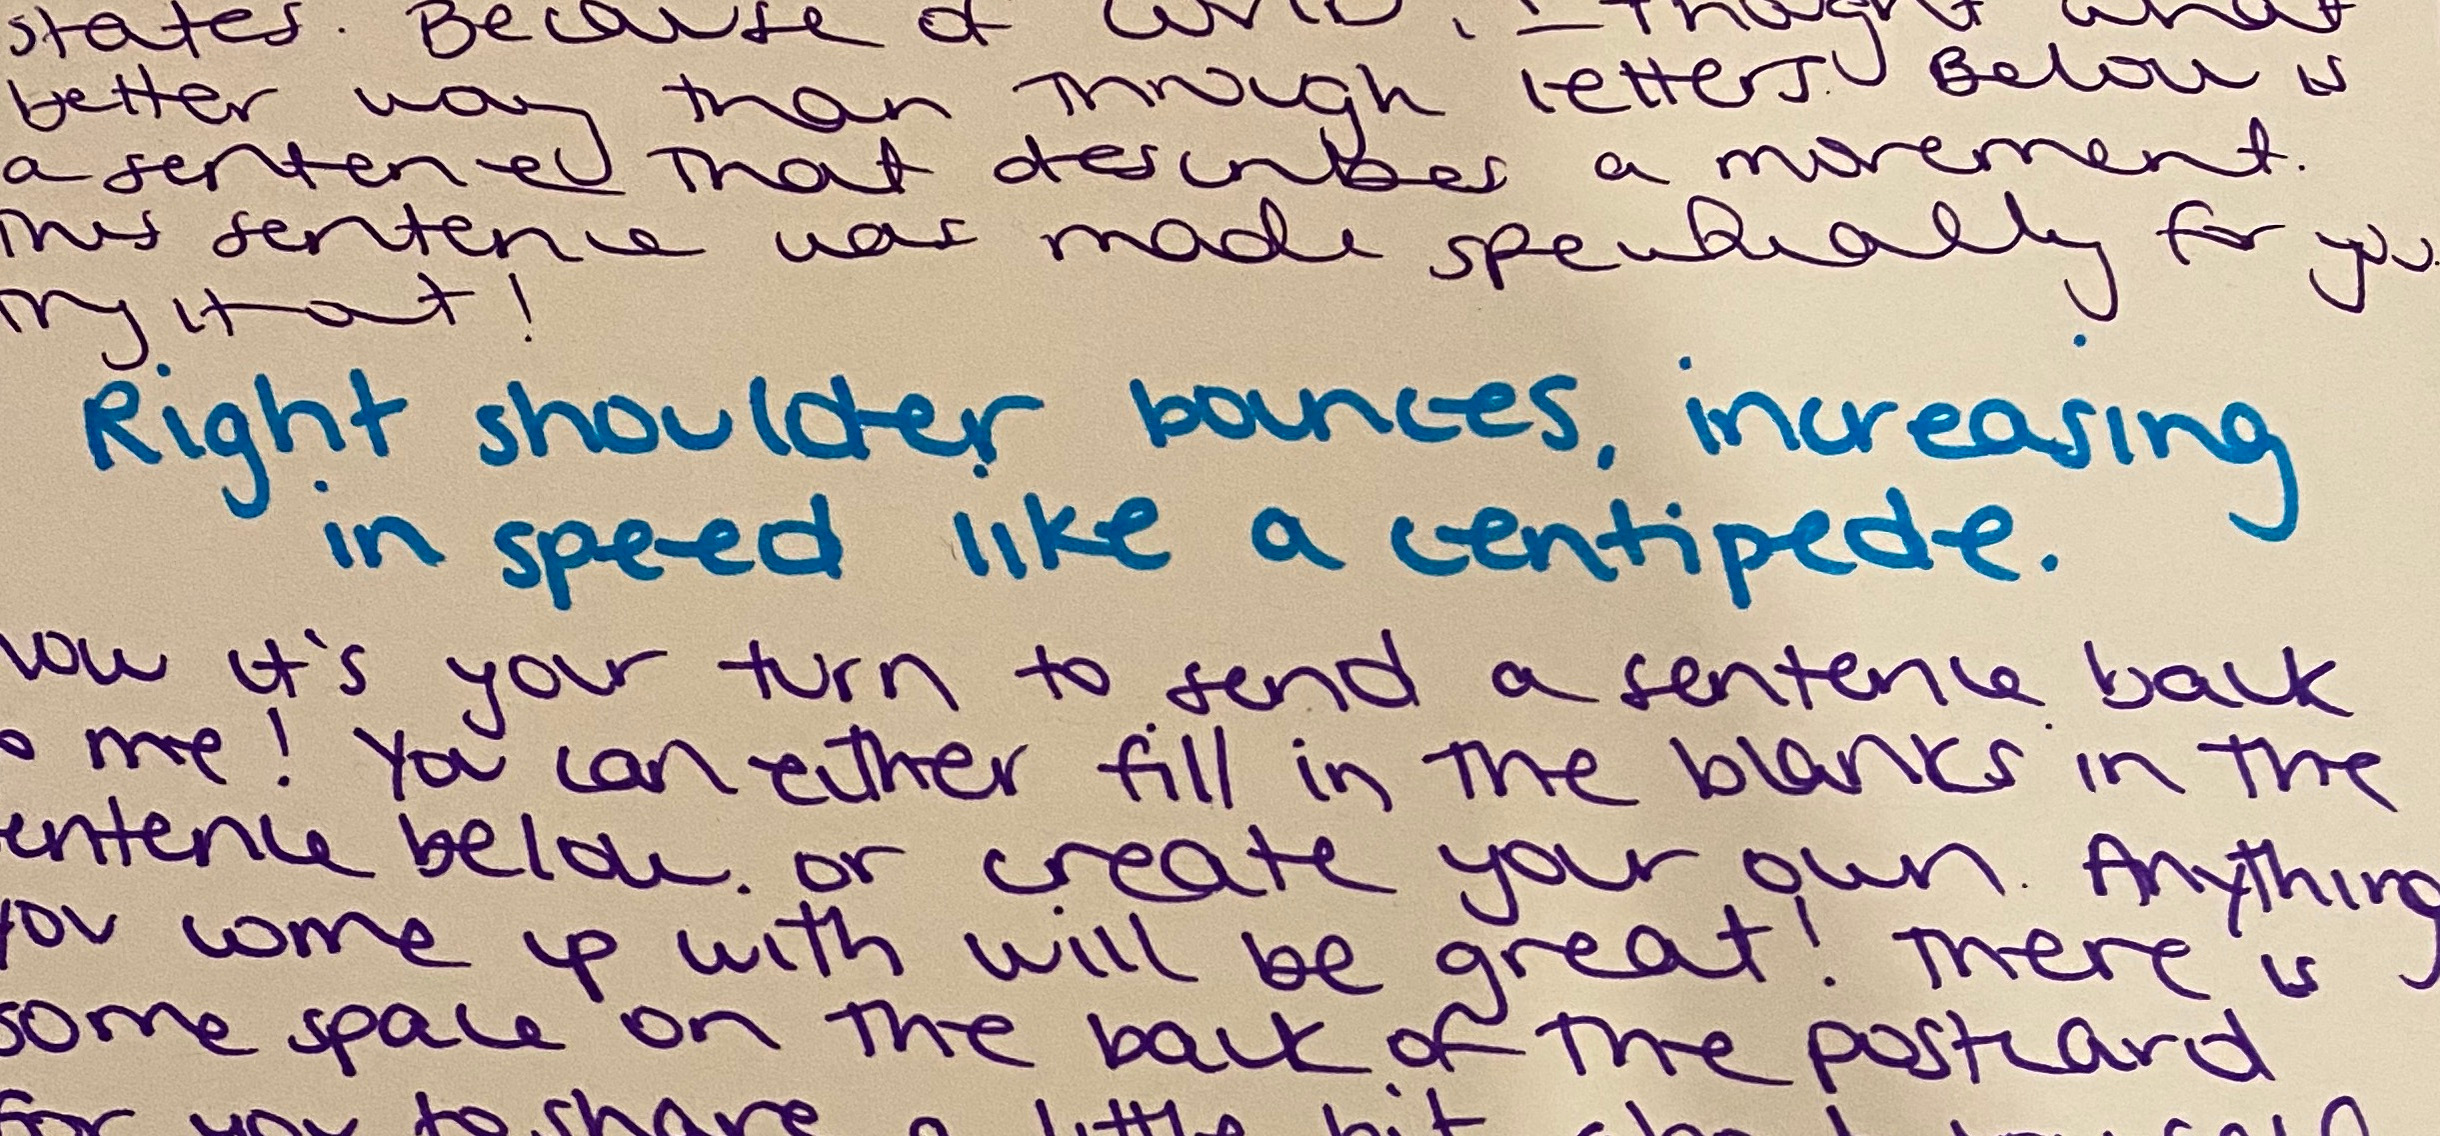 states. Because of COVID, I thought what
better way than through letters. Below is
a sentence that describes a movement.
This sentence was made specifically for you.
Try it out!
Right shoulder bounces, increasing
in speed like a centipede.
Now it's your turn to send a sentence back
to me! You can either fill in the blanks in the
sentence below or create your own. Anything
you come up with will be great! There is
some space on the back of the postcard
for you to share a little bit about yourself